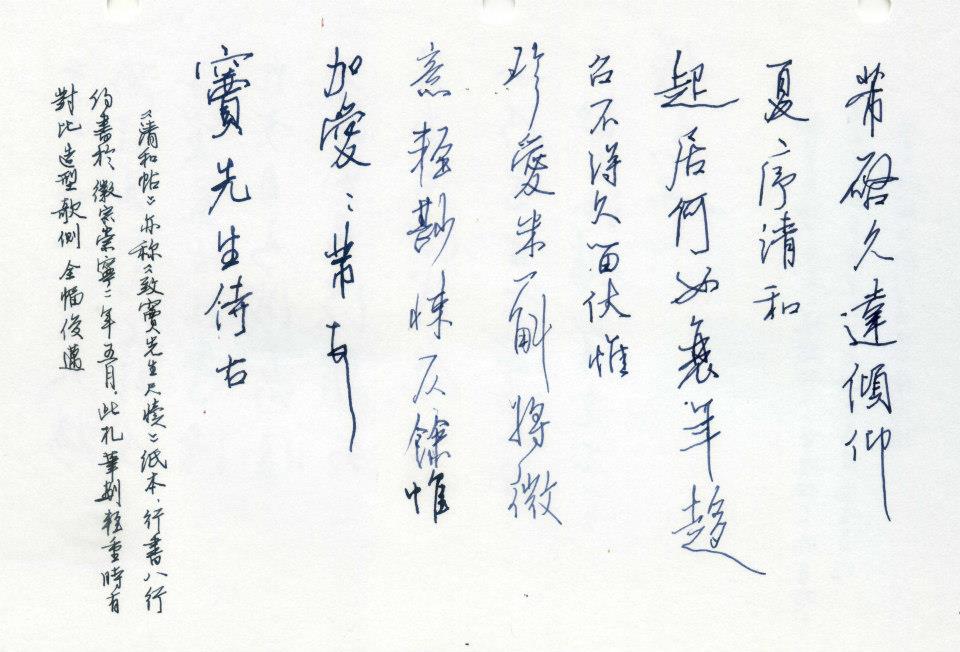 芾啓久違傾仰
夏序清和
起居何如衰年趍
召不得久留伏惟
珍愛米一斛將微
意輕尠悚仄餘惟
加愛〻芾頓首
竇先生侍右
《清和帖》亦称《致竇先生尺牘》紙本，行書八行
約書於徽宗崇寧二年五月，此札筆劃輕重時有
對比造型欹側全幅俊邁